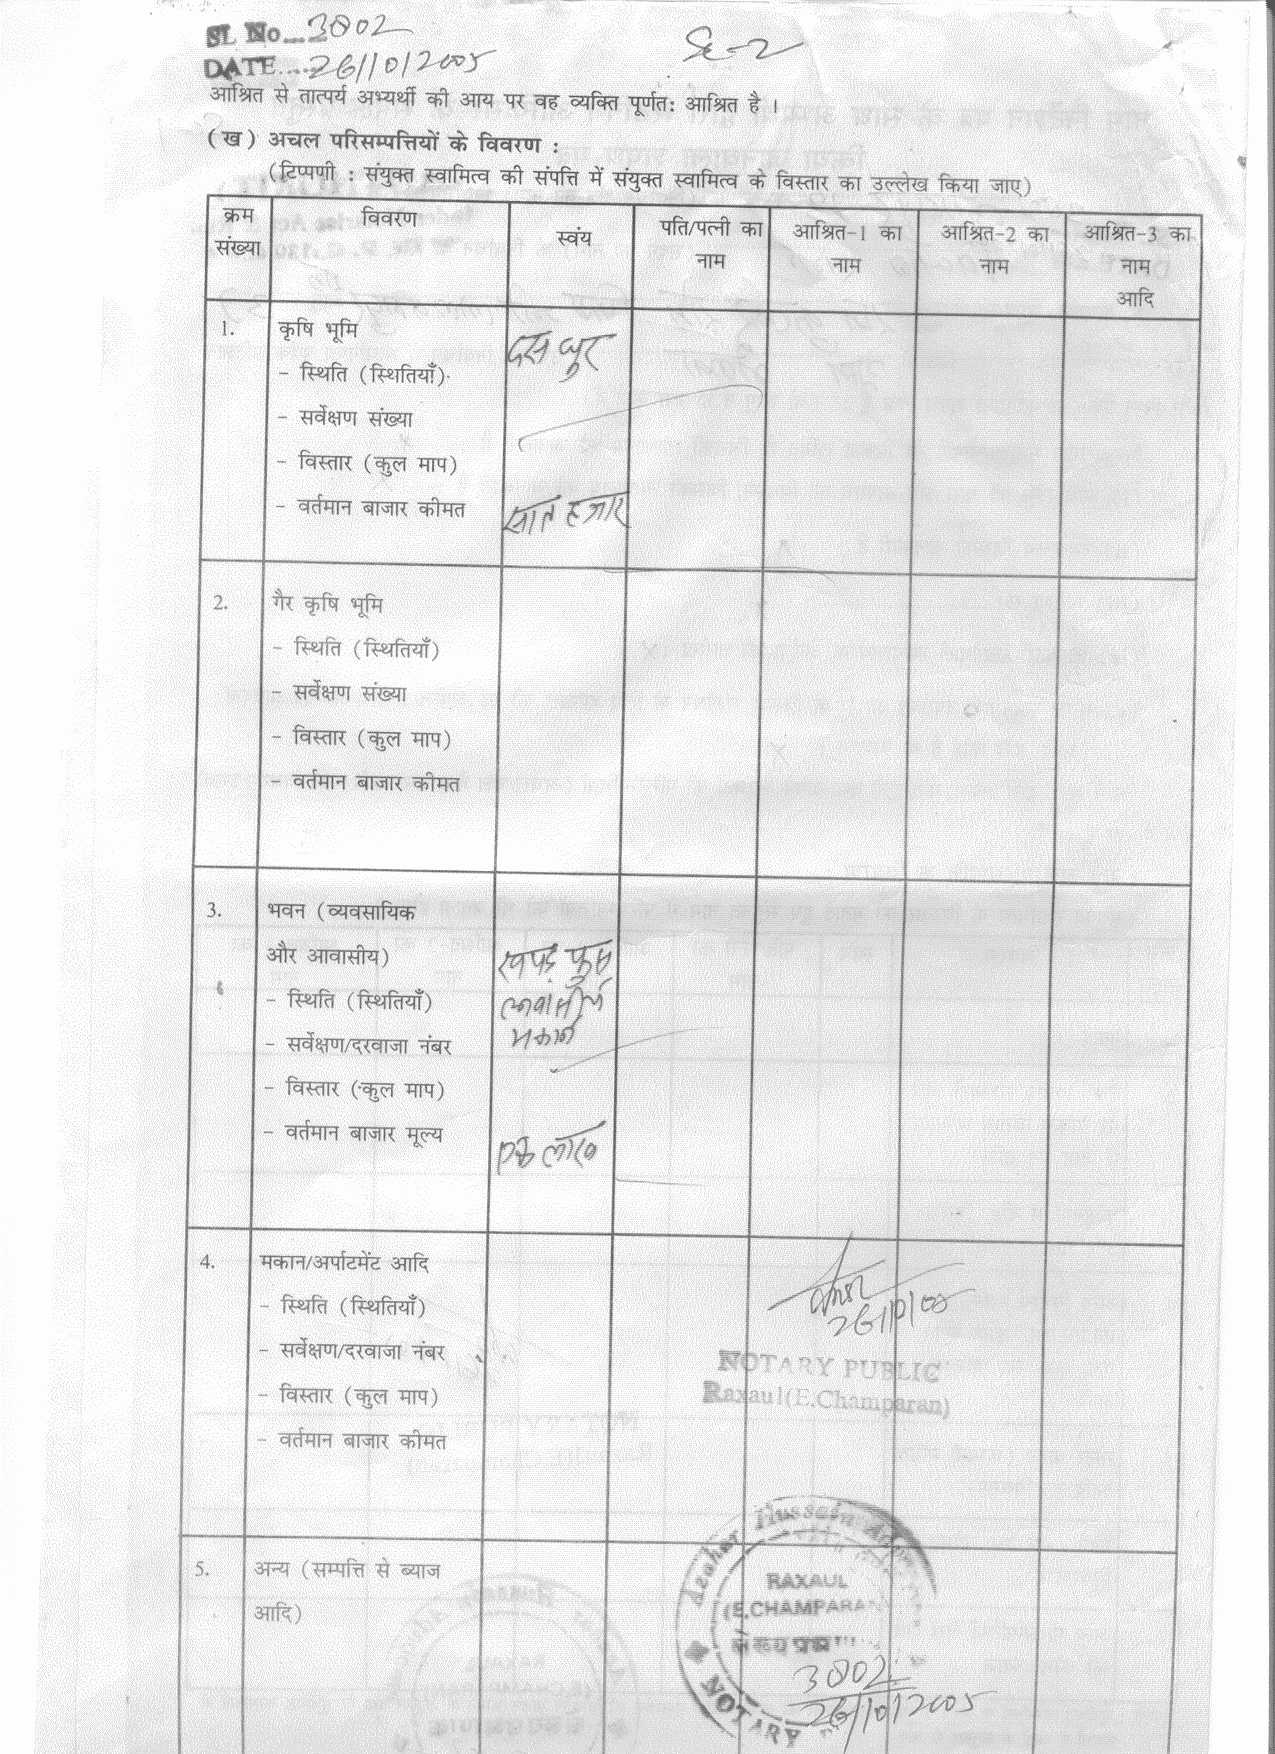 SL No....3802
DATE.....26/10/2005
आश्रित से तात्पर्य अभ्यर्थी की आय पर वह व्यक्ति पूर्णतः आश्रित है ।
(ख) अचल परिसम्पत्तियों के विवरण :
(टिप्पणी : संयुक्त स्वामित्व की संपत्ति में संयुक्त स्वामित्व के विस्तार का उल्लेख किया जाए)
क्रम संख्या विवरण स्वंय पति/पत्नी का नाम आश्रित-1 का नाम आश्रित-2 का नाम आश्रित-3 का नाम आदि
1. कृषि भूमि दस धुर
- स्थिति (स्थितियाँ)
- सर्वेक्षण संख्या
- विस्तार (कुल माप)
- वर्तमान बाजार कीमत सात हजार
2. गैर कृषि भूमि
- स्थिति (स्थितियाँ)
- सर्वेक्षण संख्या
- विस्तार (कुल माप)
- वर्तमान बाजार कीमत
3. भवन (व्यवसायिक
और आवासीय) खपड़ फुस
- स्थिति (स्थितियाँ)
- सर्वेक्षण/दरवाजा नंबर मकान
- विस्तार (कुल माप)
- वर्तमान बाजार मूल्य एक लाख
4. मकान/अर्पाटमेंट आदि
- स्थिति (स्थितियाँ) 26/10/05
- सर्वेक्षण/दरवाजा नंबर NOTARY PUBLIC
- विस्तार (कुल माप) Raxaul(E.Champaran)
- वर्तमान बाजार कीमत
5. अन्य (सम्पत्ति से ब्याज
आदि)
Azahar Hussain
RAXAUL
(E.CHAMPARAN
NOTARY
3802
26/10/2005